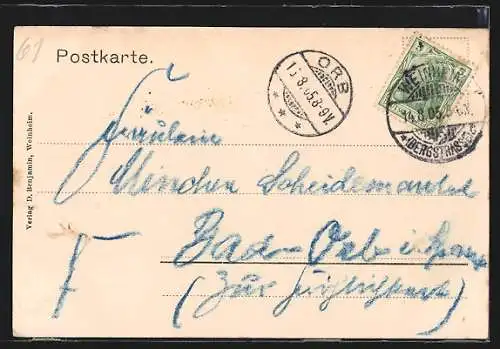 61
Postkarte.
ORB
15.8.05.8-9V.
WEINHEIM
14.8.05.
(BERGSTRASSE)
Verlag D. Benjamin, Weinheim.
Fräulein
Minchen Scheidemantel
Bad-Orb i.
(Zur